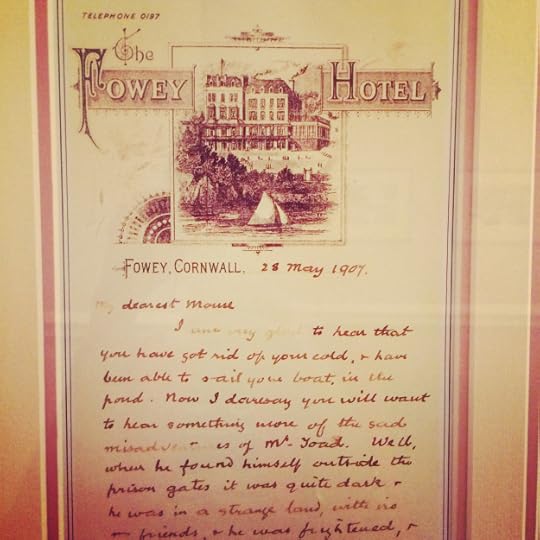 TELEPHONE 0197
The
FOWEY HOTEL
FOWEY, CORNWALL. 28 May 1907.
My dearest Mouse
I am very glad to hear that
you have got rid of your cold, & have
been able to sail your boat, in the
pond. Now I daresay you will want
to hear something more of the sad
misadventures of Mr. Toad. Well,
when he found himself outside the
prison gates it was quite dark &
he was in a strange land, with no
friends, & he was frightened, &